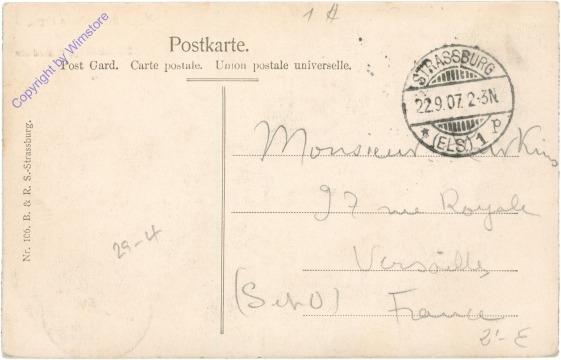 1 A
Postkarte.
Post Card. Carte postale. Union postale universelle.
Copyright by Wimstore
STRASSBURG
22.9.07. 2-3N
* (ELS) 1 p
Nr. 106. B. & R. S.-Strassburg.
Monsieur
97 rue Royale
Versailles
(S et O) France
29-4
2'-E